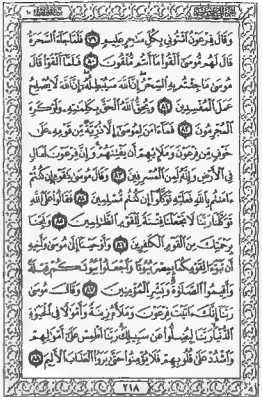 وَقَالَ فِرْعَوْنُ ائْتُونِي بِكُلِّ سَاحِرٍ عَلِيمٍ ٧٩ فَلَمَّا جَاءَ السَّحَرَةُ
قَالَ لَهُم مُّوسَىٰ أَلْقُوا مَا أَنتُم مُّلْقُونَ ٨٠ فَلَمَّا أَلْقَوْا قَالَ
مُوسَىٰ مَا جِئْتُم بِهِ السِّحْرُ إِنَّ اللَّهَ سَيُبْطِلُهُ إِنَّ اللَّهَ لَا يُصْلِحُ
عَمَلَ الْمُفْسِدِينَ ٨١ وَيُحِقُّ اللَّهُ الْحَقَّ بِكَلِمَاتِهِ وَلَوْ كَرِهَ
الْمُجْرِمُونَ ٨٢ فَمَا آمَنَ لِمُوسَىٰ إِلَّا ذُرِّيَّةٌ مِّن قَوْمِهِ عَلَىٰ
خَوْفٍ مِّن فِرْعَوْنَ وَمَلَئِهِمْ أَن يَفْتِنَهُمْ وَإِنَّ فِرْعَوْنَ لَعَالٍ
فِي الْأَرْضِ وَإِنَّهُ لَمِنَ الْمُسْرِفِينَ ٨٣ وَقَالَ مُوسَىٰ يَا قَوْمِ إِن كُنتُمْ
آمَنتُم بِاللَّهِ فَعَلَيْهِ تَوَكَّلُوا إِن كُنتُم مُّسْلِمِينَ ٨٤ فَقَالُوا عَلَى اللَّهِ
تَوَكَّلْنَا رَبَّنَا لَا تَجْعَلْنَا فِتْنَةً لِّلْقَوْمِ الظَّالِمِينَ ٨٥ وَنَجِّنَا
بِرَحْمَتِكَ مِنَ الْقَوْمِ الْكَافِرِينَ ٨٦ وَأَوْحَيْنَا إِلَىٰ مُوسَىٰ وَأَخِيهِ
أَن تَبَوَّآ لِقَوْمِكُمَا بِمِصْرَ بُيُوتًا وَاجْعَلُوا بُيُوتَكُمْ قِبْلَةً
وَأَقِيمُوا الصَّلَاةَ وَبَشِّرِ الْمُؤْمِنِينَ ٨٧ وَقَالَ مُوسَىٰ
رَبَّنَا إِنَّكَ آتَيْتَ فِرْعَوْنَ وَمَلَأَهُ زِينَةً وَأَمْوَالًا فِي الْحَيَاةِ
الدُّنْيَا رَبَّنَا لِيُضِلُّوا عَن سَبِيلِكَ رَبَّنَا اطْمِسْ عَلَىٰ أَمْوَالِهِمْ
وَاشْدُدْ عَلَىٰ قُلُوبِهِمْ فَلَا يُؤْمِنُوا حَتَّىٰ يَرَوُا الْعَذَابَ الْأَلِيمَ ٨٨
٢١٨